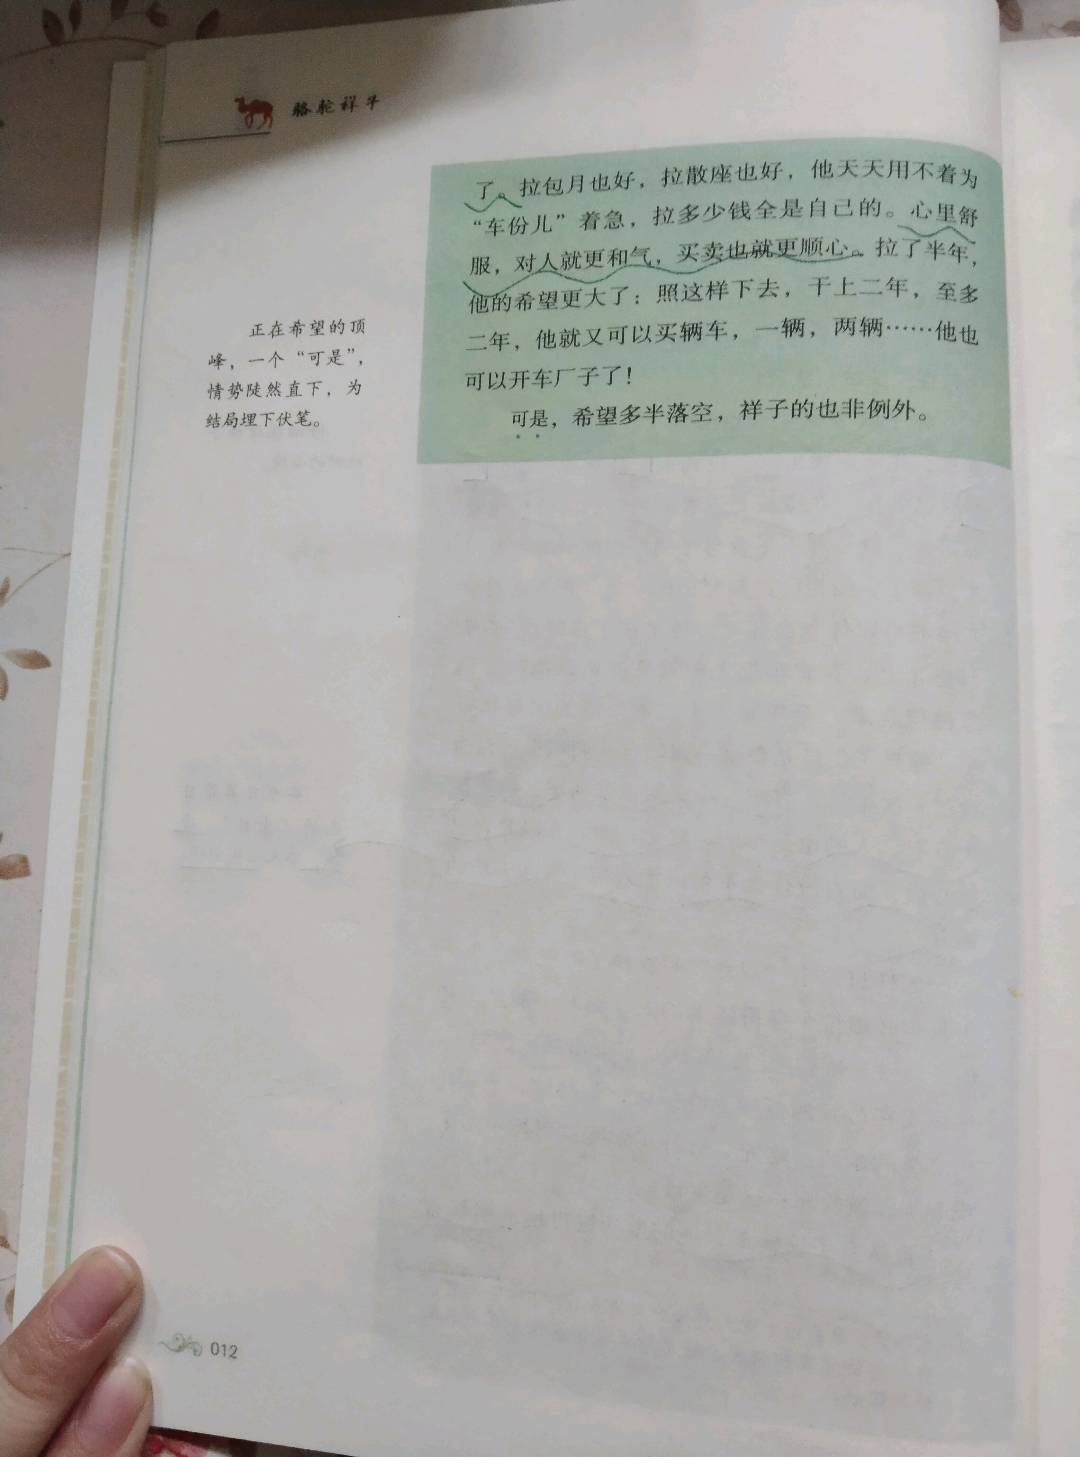 骆驼祥子
了。拉包月也好，拉散座也好，他天天用不着为
“车份儿”着急，拉多少钱全是自己的。心里舒
服，对人就更和气，买卖也就更顺心。拉了半年，
他的希望更大了：照这样下去，干上二年，至多
二年，他就又可以买辆车，一辆，两辆……他也
可以开车厂子了！
可是，希望多半落空，祥子的也非例外。
正在希望的顶
峰，一个“可是”，
情势陡然直下，为
结局埋下伏笔。
012